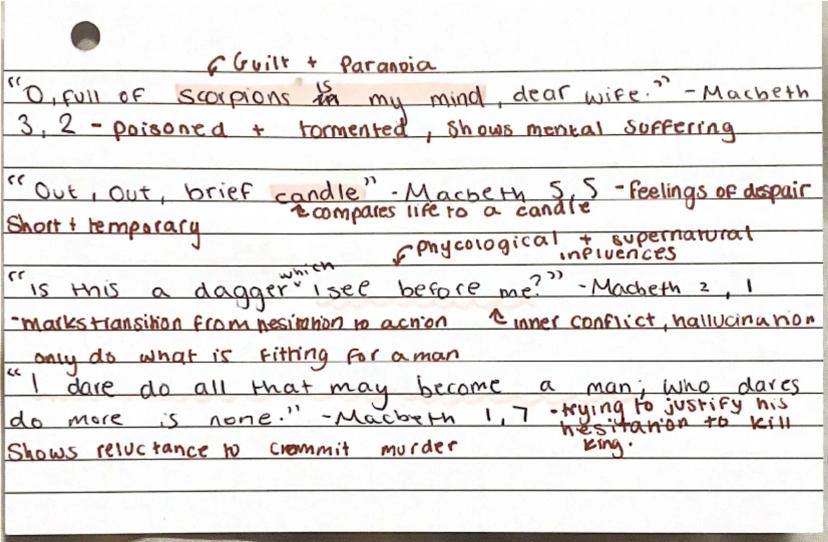 Guilt + Paranoia
"O, full of scorpions is my mind, dear wife." - Macbeth
3, 2 - poisoned + tormented, shows mental suffering
"Out, out, brief candle" - Macbeth 5, 5 - feelings of despair
compares life to a candle
Short + temporary
Phycological + supernatural
influences
"Is this a dagger which I see before me?" - Macbeth 2, 1
- marks transition from hesitation to action inner conflict, hallucination
only do what is fitting for a man
"I dare do all that may become a man; who dares
do more is none." - Macbeth 1, 7 - trying to justify his
hesitation to kill
Shows reluctance to commit murder king.